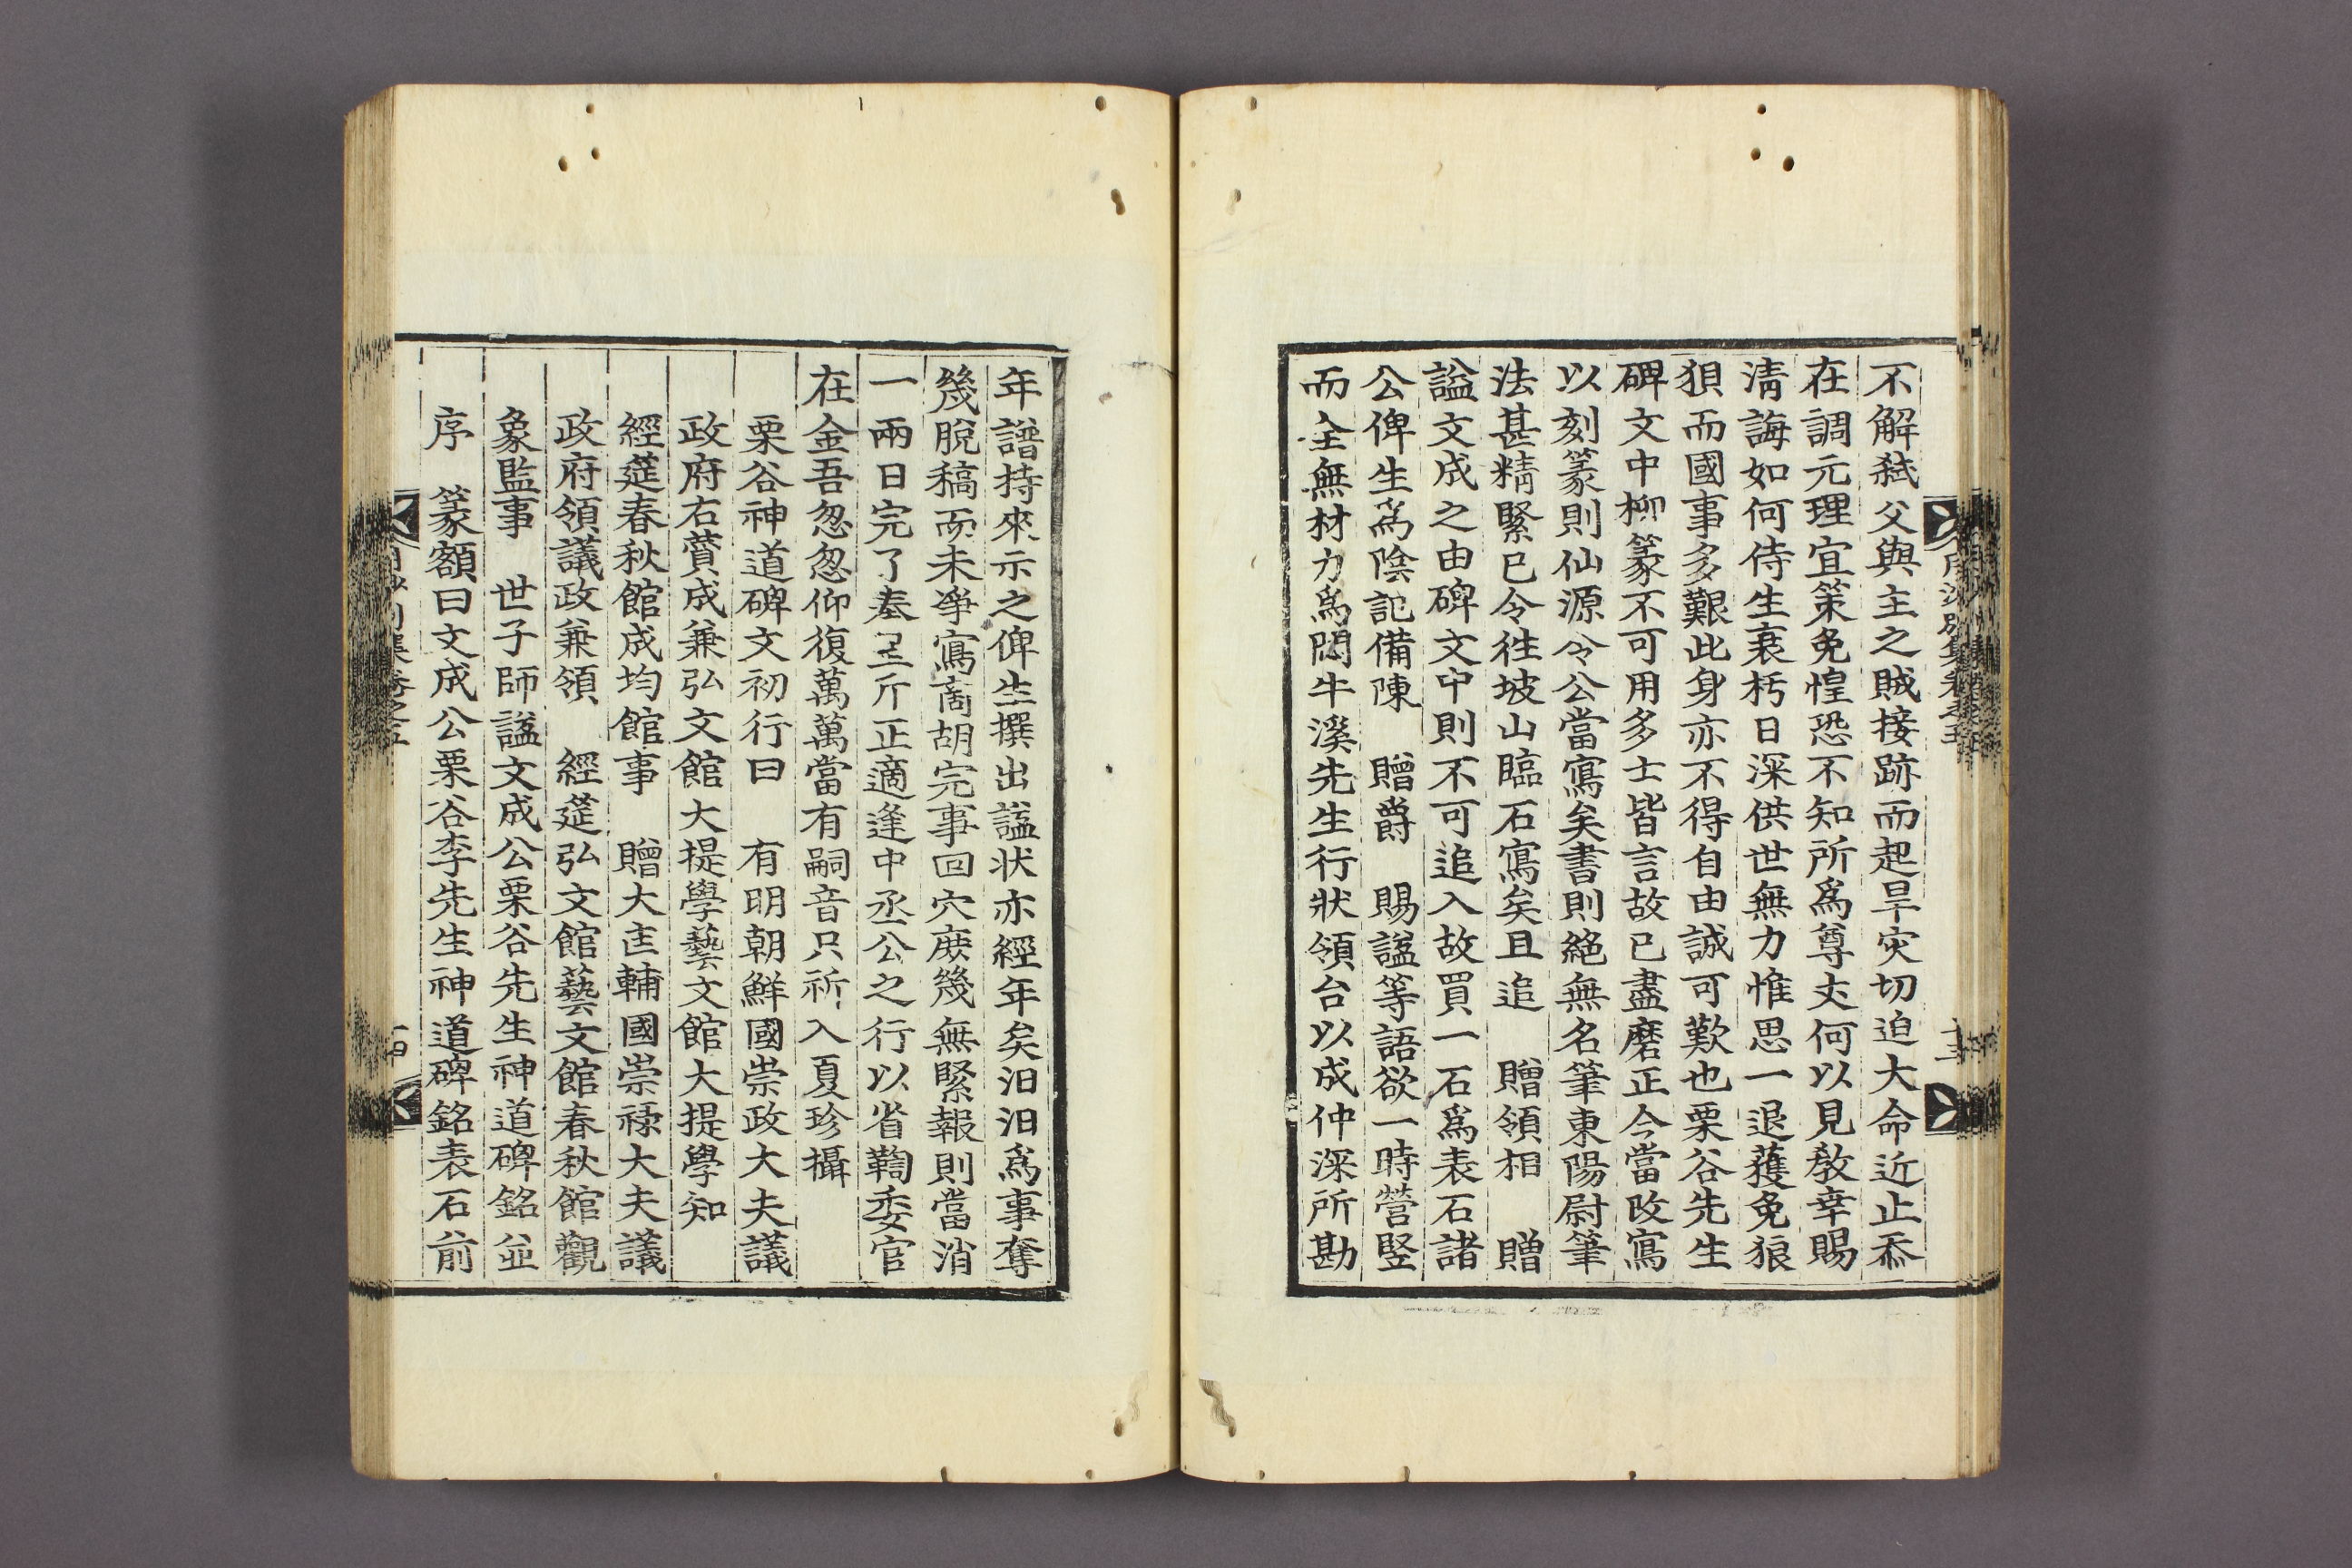 不解弑父與主之賊接跡而起旱灾切迫大命近止忝
在調元理宜策免惶恐不知所爲尊丈何以見敎幸賜
淸誨如何侍生衰朽日深供世無力惟思一退獲免狼
狽而國事多艱此身亦不得自由誠可歎也栗谷先生
碑文中柳篆不可用多士皆言故已盡磨正今當改寫
以刻篆則仙源令公當寫矣書則絕無名筆東陽尉筆
法甚精緊已令徃坡山臨石寫矣且追 贈領相 贈
謚文成之由碑文中則不可追入故買一石爲表石諸
公俾生爲陰記備陳 贈爵 賜謚等語欲一時營竪
而全無材力爲悶牛溪先生行狀領台以成仲深所勘
年譜持來示之俾生撰出謚状亦經年矣汨汨爲事奪
幾脫稿而未淨寫啇胡完事回穴庻幾無緊報則當消
一兩日完了奏呈斤正適逢中丞公之行以省鞫委官
在金吾忽忽仰復萬萬當有嗣音只祈入夏珍攝
栗谷神道碑文初行曰 有明朝鮮國崇政大夫議
政府右賛成兼弘文館大提學藝文館大提學知
經筵春秋館成均館事 贈大匡輔國崇祿大夫議
政府領議政兼領 經筵弘文館藝文館春秋館觀
象監事 世子師謚文成公栗谷先生神道碑銘並
序 篆額曰文成公栗谷李先生神道碑銘表石前